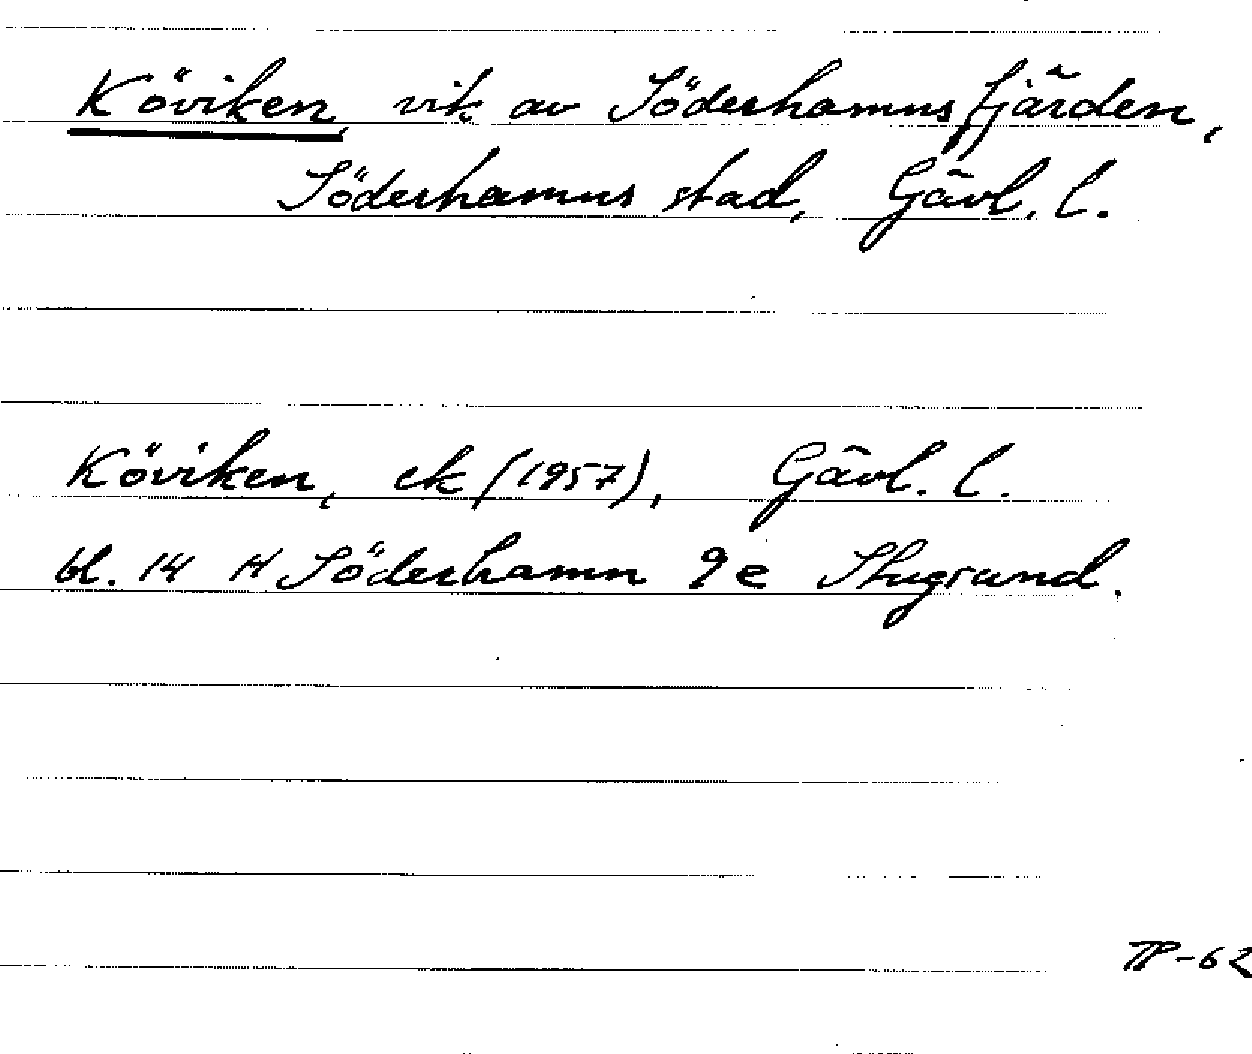 Köviken, vik av Söderhamnsfjärden,
Söderhamns stad, Gävl. l.
Köviken, ek (1957), Gävl. l.
bl. 14 H Söderhamn 9 e Stugsund.
TP-62